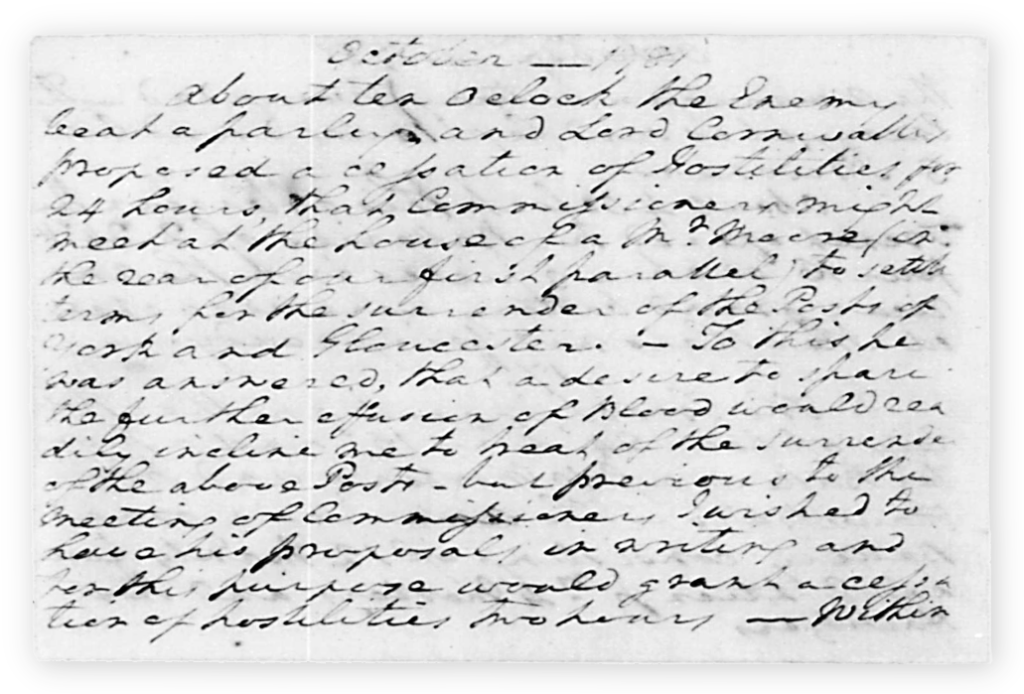 October — 1781
About ten Oclock the Enemy
beat a parley, and Lord Cornwallis
proposed a cessation of Hostilities for
24 hours, that Commissioners might
meet at the house of a Mr. Moore (in
the rear of our first parallel) to settle
terms for the surrender of the Posts of
York and Gloucester. — To this he
was answered, that a desire to spare
the further effusion of Blood would rea
dily incline me to treat of the surrende
of the above Posts - but previous to the
meeting of Commissioners I wished to
have his proposals in writing and
for this purpose would grant a cessa
tion of hostilities two hours — Within